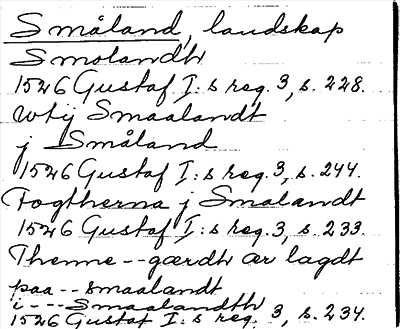 Småland, landskap
Smolandh
1526 Gustaf I:s reg. 3, s. 228.
wtij Smaalandt
j Småland
1526 Gustaf I:s reg. 3, s. 244.
Fogtherna j Smalandt
1526 Gustaf I:s reg. 3, s. 233.
Thenne -- gærdh ær lagdt
paa -- smaalandt
i --- Smaalandth
1526 Gustaf I:s reg. 3, s. 234.